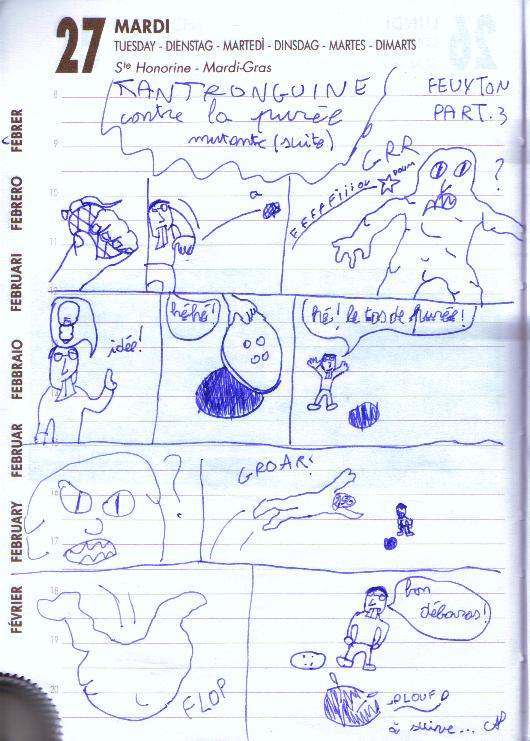 27 MARDI
TUESDAY - DIENSTAG - MARTEDÌ - DINSDAG - MARTES - DIMARTS
Ste Honorine - Mardi-Gras
TANTRONGUINE
contre la purée
mutante (suite)
FEUYTON
PART. 3
8
9
10
11
12
GRR
?
BOUM
idée!
héhé!
hé! le tas de purée!
?
GROAR!
16
17
18
19
20
FLOP
bon
débaras!
PLOUF
à suivre...
FÉVRIER FEBRUARY FEBRUAR FEBBRAIO FEBRUARI FEBRERO FEBRER